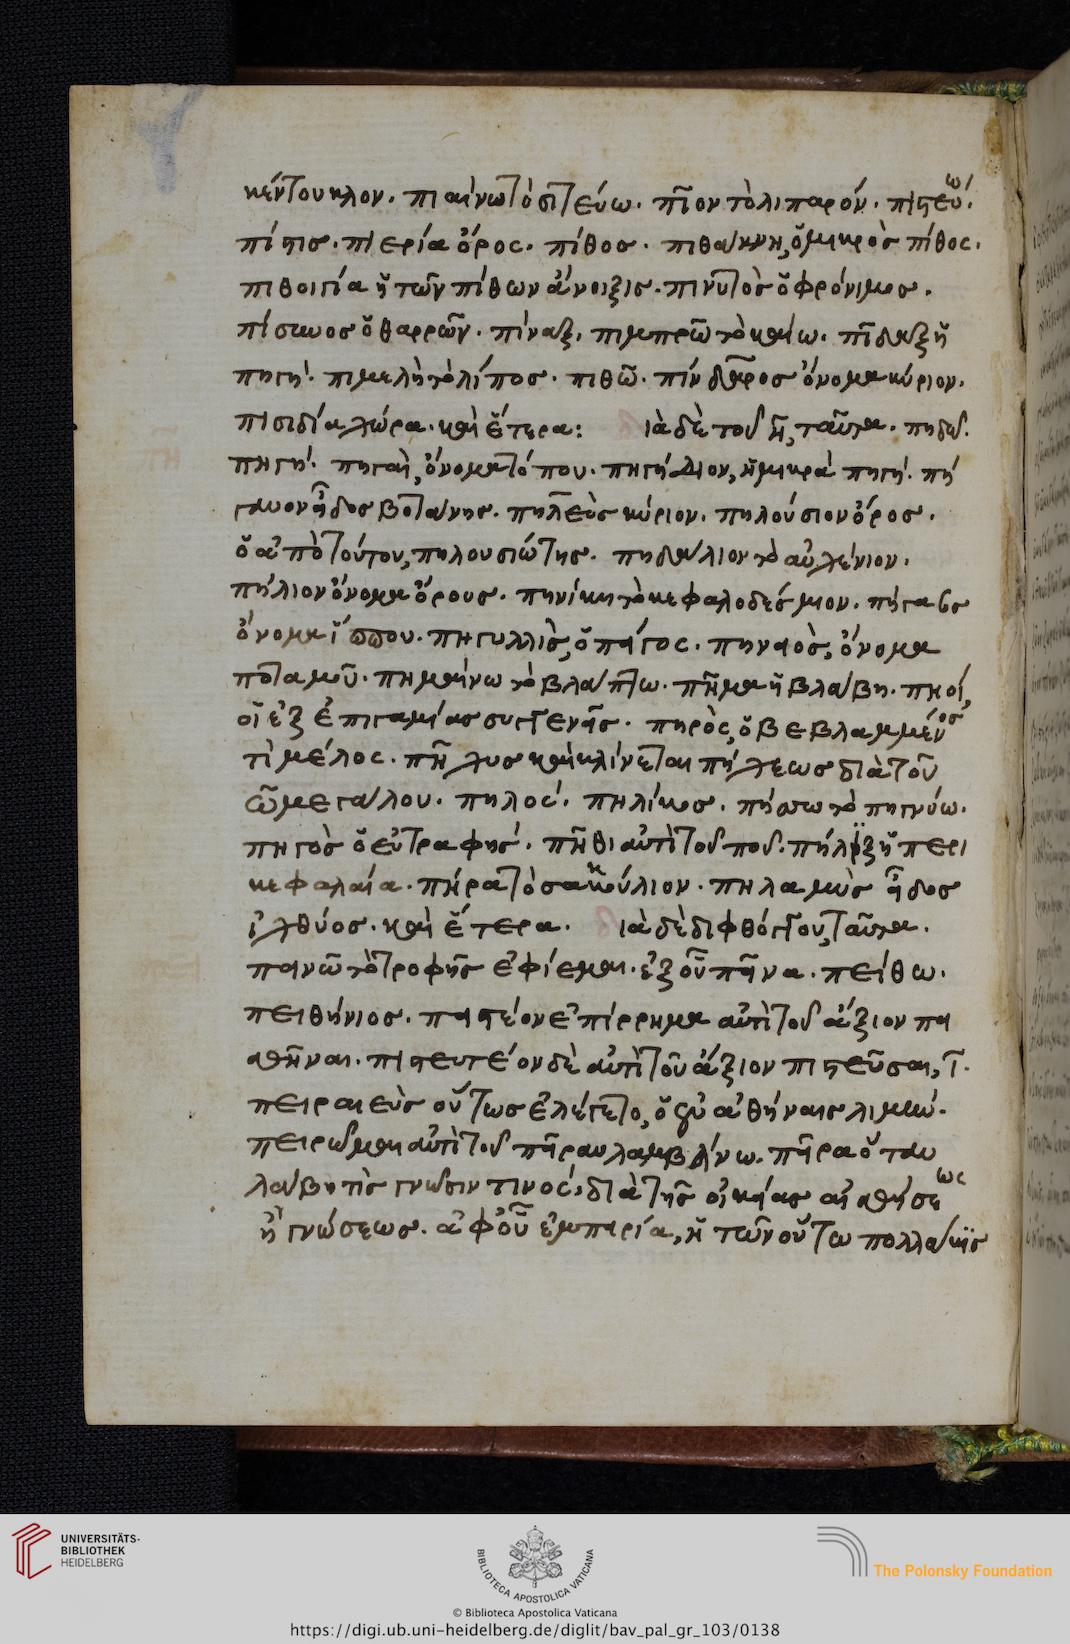 κέντουκλον. πιαίνω τὸ σιτεύω. πῖον τὸ λιπαρόν. πιστεύω.
πίστις. πιερία ὄρος. πίθος. πιθάκνη, ὁ μικρὸς πίθος.
πιθοιγία ἡ τῶν πίθων ἄνοιξις. πινυτὸς ὁ φρόνιμος.
πίσυνος ὁ θαρρῶν. πίναξ. πιμπρῶ τὸ καίω. πῖδαξ ἡ
πηγή. πιμελὴ τὸ λίπος. πιθῶ. πίνδαρος ὄνομα κύριον.
πισιδία χώρα. καὶ ἕτερα: ιὰ δὲ τοῦ η, ταῦτα. πηδῶ.
πηγή. πηγαὶ, ὄνομα τόπου. πηγάδιον, ἡ μικρὰ πηγή. πή
γανον εἶδος βοτάνης. πηλεὺς κύριον. πηλούσιον ὄρος.
ὁ ἀπὸ τούτου, πηλουσιώτης. πηδάλιον τὸ αὐχένιον.
πήλιον ὄνομα ὄρους. πηνίκη τὸ κεφαλοδέσμιον. πήγασος
ὄνομα ἵππου. πηγυλλὶς, ὁ πάγος. πηνειὸς, ὄνομα
ποταμοῦ. πημαίνω τὸ βλάπτω. πῆμα ἡ βλάβη. πηοί,
οἱ ἐξ ἐπιγαμίας συγγενεῖς. πηρὸς, ὁ βεβλαμμένος
τὶ μέλος. πῆχυς καὶ κλίνεται πήχεως διὰ τοῦ
ω μεγάλου. πηλός. πηλίκος. πήσσω τὸ πηγνύω.
πηγὸς ὁ εὐτραφής. πῆθι αὐτὶ τοῦ ποῦ. πήληξ ἡ περι
κεφαλαία. πήρα τὸ σακκούλιον. πηλαμὺς εἶδος
ἰχθύος. καὶ ἕτερα. ιὰ δὲ διφθόγγου, ταῦτα.
πεινῶ τὸ τροφῆς ἐφίεμαι. ἐξ οὗ πεῖνα. πείθω.
πειθήνιος. πειστέον ἐπίρρημα αὐτὶ τοῦ ἄξιον πει
σθῆναι. πιστευτέον δὲ αὐτὶ τοῦ ἄξιον πιστεῦσαι, ι.
πειραιεὺς οὕτως ἐλέγετο, ὁ ἐν ἀθήναις λιμήν.
πειρῶμαι αὐτὶ τοῦ πεῖραν λαμβάνω. πεῖρα ὅταν
λάβη τὶς γνῶσιν τινός, διὰ τῆς οἰκείας αἰσθήσεως
ἢ γνώσεως. ἀφ' οὗ ἐμπειρία, ἡ τῶν οὕτω πολλάκις
UNIVERSITÄTS-
BIBLIOTHEK
HEIDELBERG
BIBLIOTECA APOSTOLICA VATICANA
The Polonsky Foundation
© Biblioteca Apostolica Vaticana
https://digi.ub.uni-heidelberg.de/diglit/bav_pal_gr_103/0138